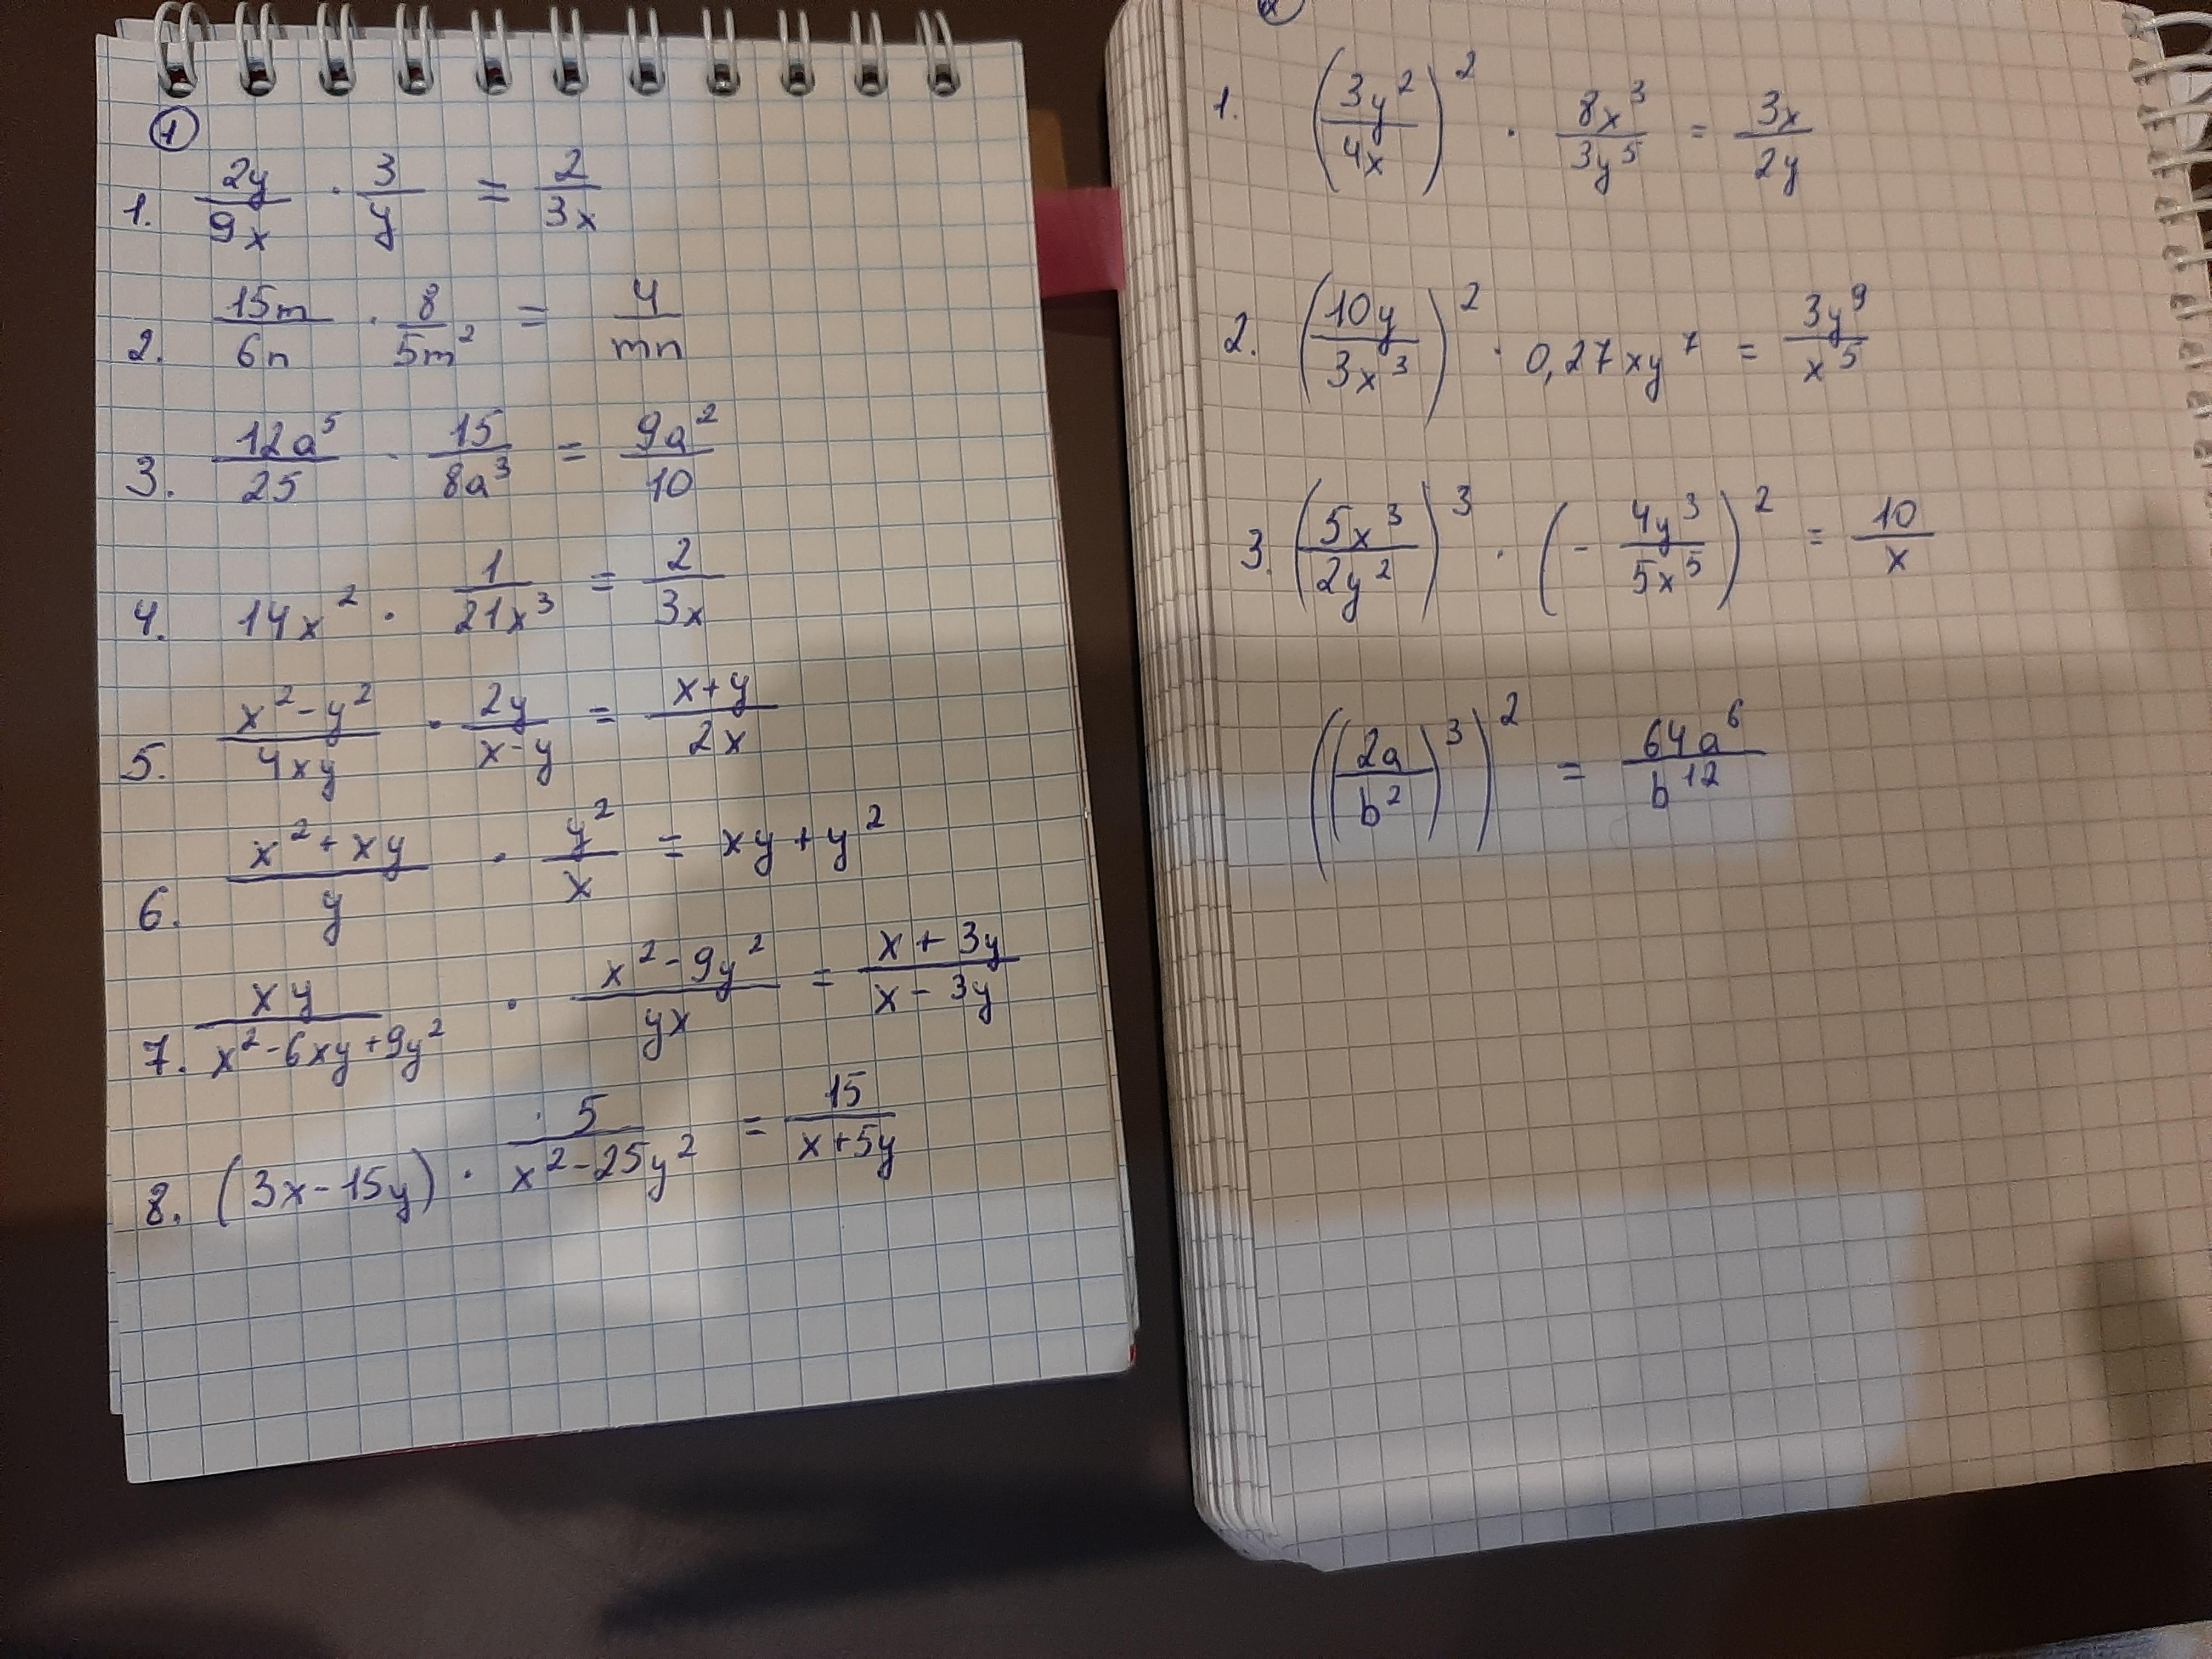 ①
1. \frac{2y}{9x} · \frac{3}{y} = \frac{2}{3x}
2. \frac{15m}{6n} · \frac{8}{5m^2} = \frac{4}{mn}
3. \frac{12a^5}{25} · \frac{15}{8a^3} = \frac{9a^2}{10}
4. 14x^2 · \frac{1}{21x^3} = \frac{2}{3x}
5. \frac{x^2-y^2}{4xy} · \frac{2y}{x-y} = \frac{x+y}{2x}
6. \frac{x^2+xy}{y} · \frac{y^2}{x} = xy+y^2
7. \frac{xy}{x^2-6xy+9y^2} · \frac{x^2-9y^2}{yx} = \frac{x+3y}{x-3y}
8. (3x-15y) · \frac{5}{x^2-25y^2} = \frac{15}{x+5y}
②
1. (\frac{3y^2}{4x})^2 · \frac{8x^3}{3y^5} = \frac{3x}{2y}
2. (\frac{10y}{3x^3})^2 · 0,27xy^7 = \frac{3y^9}{x^5}
3. (\frac{5x^3}{2y^2})^3 · (-\frac{4y^3}{5x^5})^2 = \frac{10}{x}
((\frac{2a}{b^2})^3)^2 = \frac{64a^6}{b^{12}}